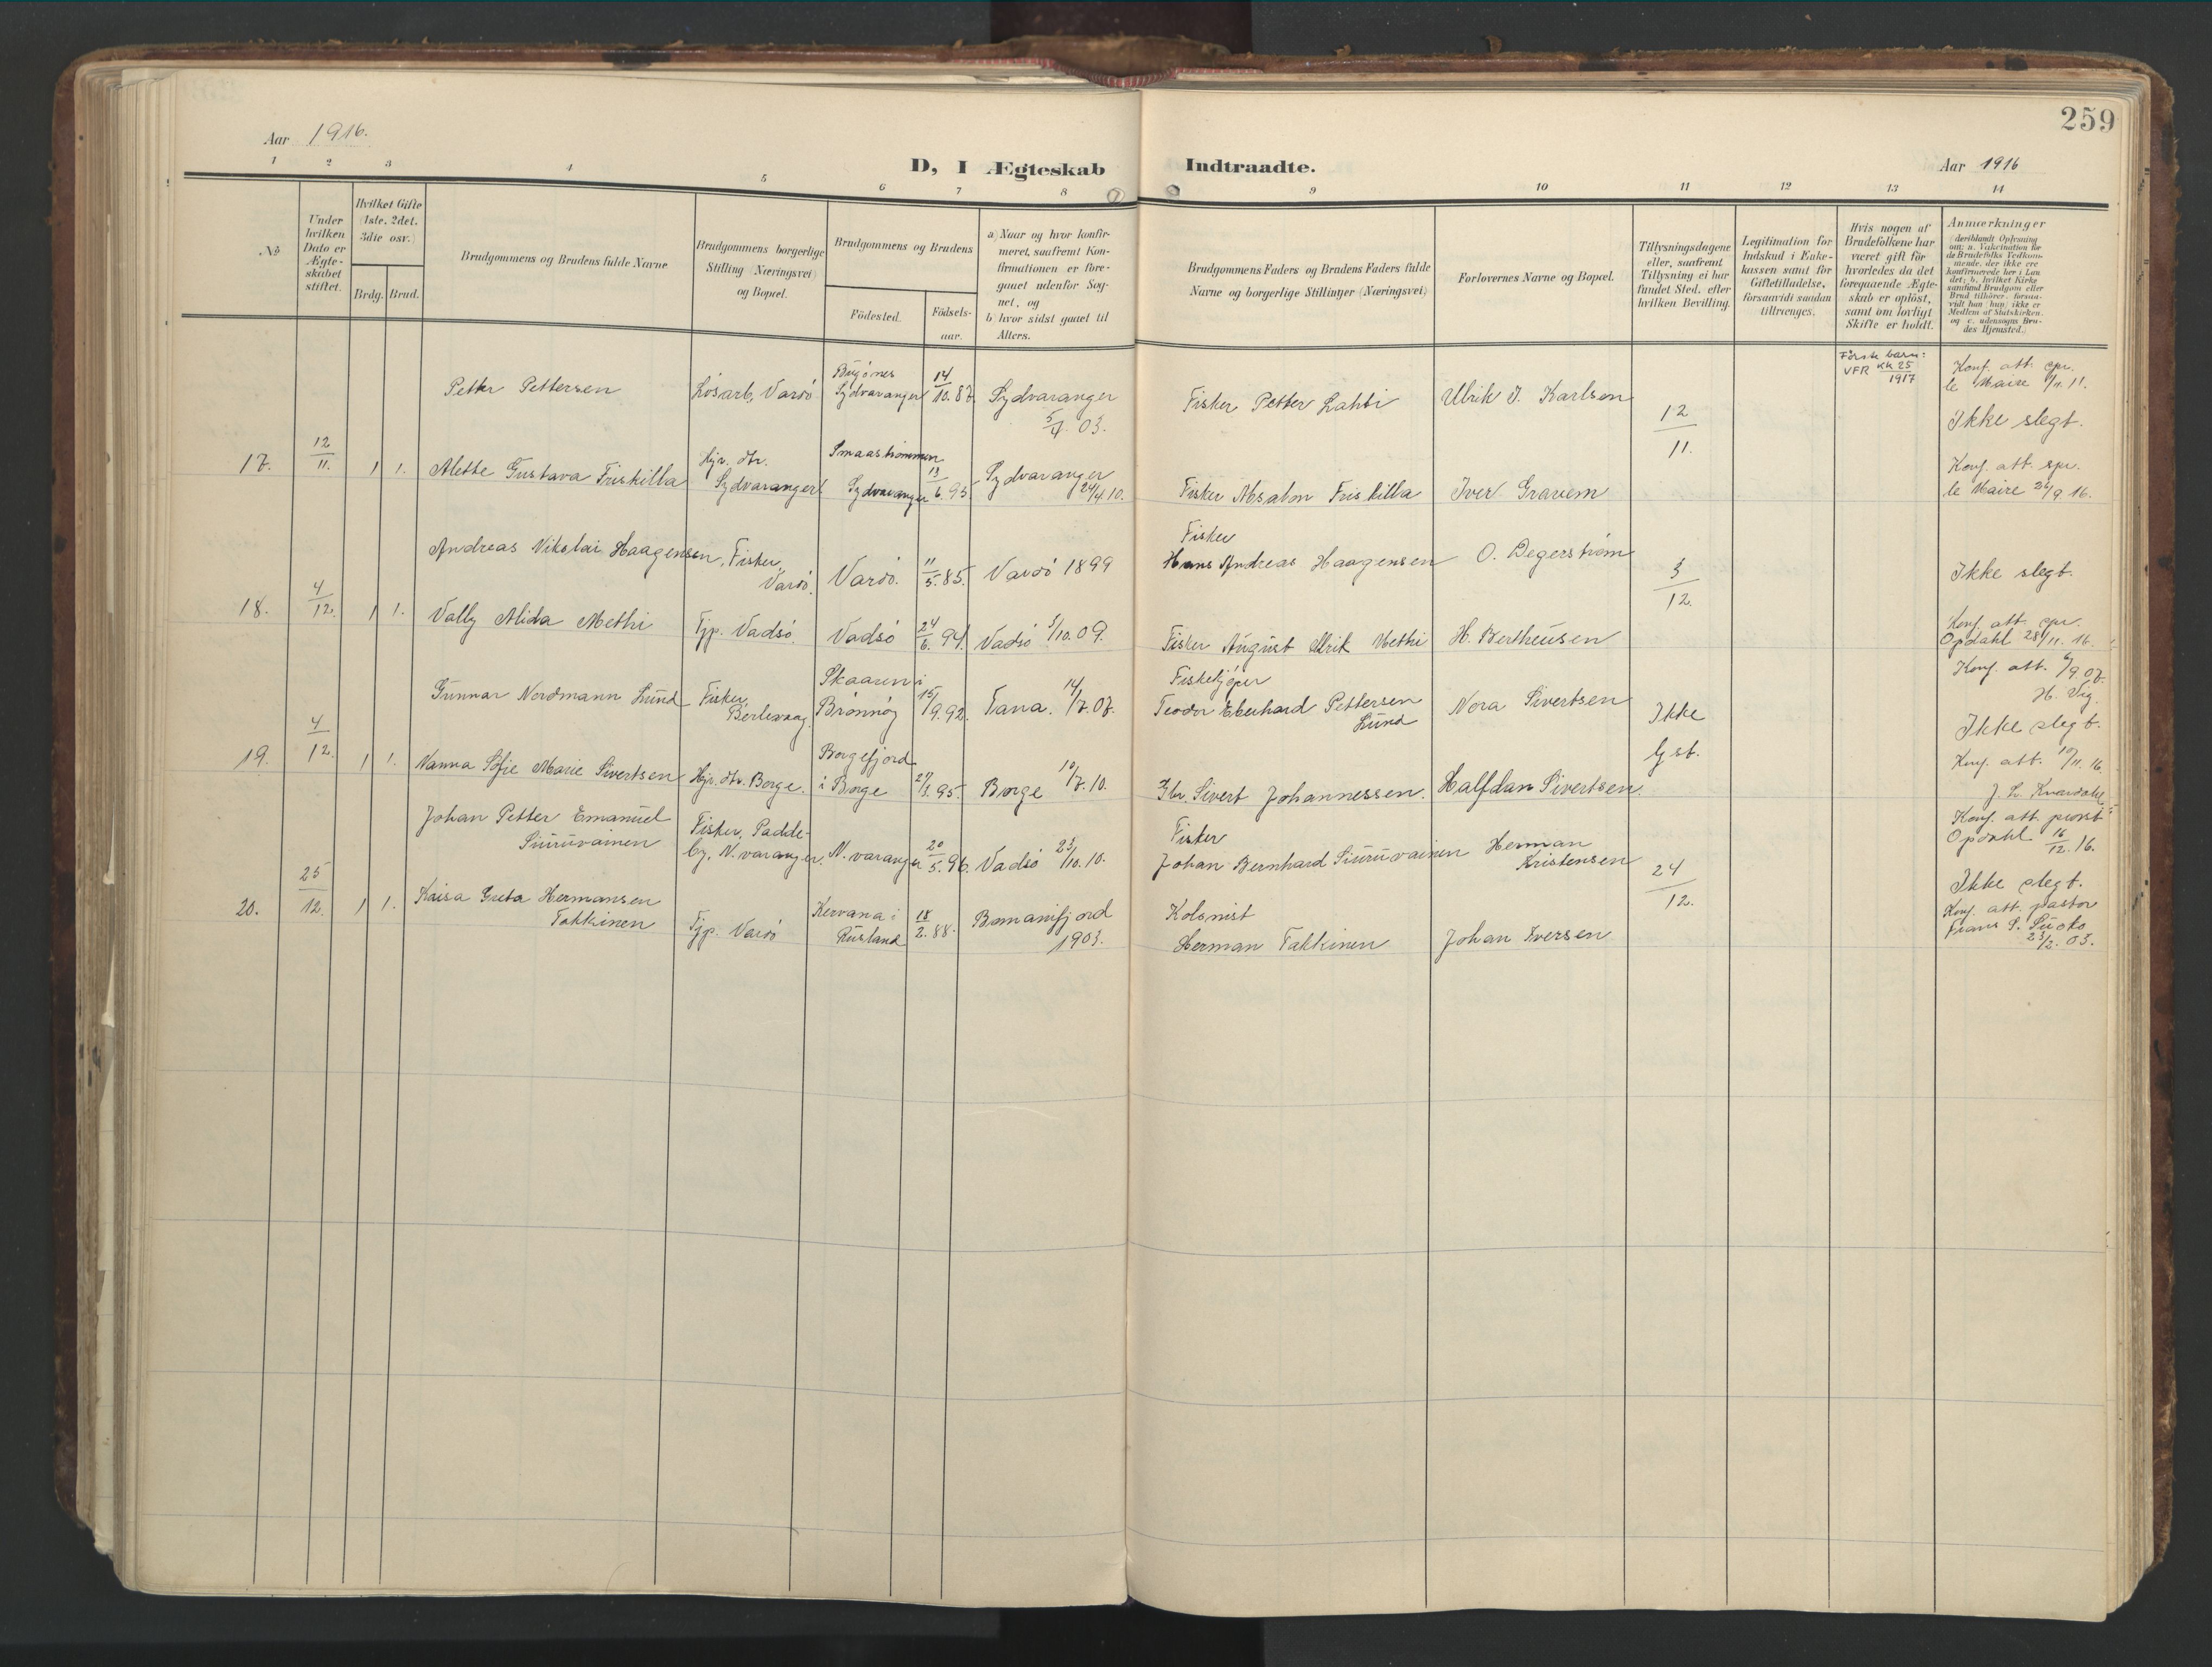 259
Aar 1916.
D, I Ægteskab Indtraadte.
Aar 1916
1 2 3 4 5 6 7 8 9 10 11 12 13 14
№
Under hvilken Dato er Ægteskabet stiftet.
Hvilket Gifte (1ste. 2det. 3die osv.)
Brdg. Brud.
Brudgommens og Brudens fulde Navne
Brudgommens borgerlige Stilling (Næringsvei) og Bopæl.
Brudgommens og Brudens
Födested.
Födsels-aar.
a) Naar og hvor konfir-
meret, saafremt Kon-
firmationen er fore-
gaaet udenfor Sog-
net, og
b) hvor sidst gaaet til
Alters.
Brudgommens Faders og Brudens Faders fulde
Navne og borgerlige Stillinger (Næringsvei)
Forlovernes Navne og Bopæl.
Tillysningsdagene
eller, saafremt
Tillysning ei har
fundet Sted, efter
hvilken Bevilling.
Legitimation for
Indskud i Enke-
kassen samt for
Giftetilladelse,
forsaavidt saadan
tiltrænges.
Hvis nogen af
Brudefolkene har
været gift før
hvorledes da det
foregaaende Ægte-
skab er oplöst,
samt om lovligt
Skifte er holdt.
Anmærkninger
(deriblandt Oplysning
om: a. Vakcination for
de Brudefolks Vedkom-
mende, der ikke ere
konfirmerede her i Lan
det; b. hvilket Kirke
samfund Brudgom eller
Brud tilhörer, forsaa-
vidt han, hun ikke er
Medlem af Statskirken,
og c. udensogns Bru-
des Hjemsted.)
Petter Pettersen
Lösarb, Vardö
Bugönes
Sydvaranger
14/10. 87
Sydvaranger
5/4 03.
Fisker Petter Lahti
Ulrik J. Karlsen
12/11.
Første barn:
VFR KK 25
1917
Konf. att. spr.
le Maire 1/11. 11.
Ikke slegt.
17. 12/11. 1 1.
Alette Gustava Friskilla
Hjv. dtr.
Sydvaranger
Smaaströmmen
Sydvaranger
13/6. 95
Sydvaranger
24/4. 10.
Fisker Absalon Friskilla
Iver Gravem
Konf. att. spr.
le Maire 26/9. 16.
Andreas Nikolai Haagensen,
Fisker,
Vardö.
Vardö.
11/5. 85.
Vardö 1899
Fisker
Hans Andreas Haagensen
O. Degerström
3/12.
Ikke slegt.
18. 4/12. 1 1.
Vally Alida Methi
Tjp. Vadsö.
Vadsö
24/6. 94.
Vadsö 3/10. 09.
Fisker August Ulrik Methi
H. Bertheusen
Konf. att. spr.
Opdahl 28/11. 16.
Gunnar Nordmann Lund
Fisker,
Berlevaag.
Skaaren i
Brønnøy
15/9. 92.
Tana. 14/7. 07.
Fiskekjöper
Teodor Eberhard Pettersen
Lund
Nora Sivertsen
Ikke
lyst.
Konf. att. 6/9. 07.
H. Vig
Ikke slegt.
19. 4/12. 1 1.
Nanna Sofie Marie Sivertsen
Hjv. dtr. Borge.
Borgefjord
i Borge
27/3. 95.
Borge 10/7. 10.
Gbr. Sivert Johannessen.
Halfdan Sivertsen.
Konf. att. 10/11. 16
Johan Petter Emanuel
Siuruvainen
Fisker, Padde-
by, N. varanger.
N. varanger
20/5. 96.
Vadsö 23/10. 10.
Fisker
Johan Bernhard Siuruvainen
Herman
Kristensen
24/12.
Konf. att. prost
Opdahl 16/12. 16.
Ikke slegt.
20. 25/12. 1 1.
Kaisa Greta Hermansen
Takkinen
Tjp. Vardö
Kervana i
Rusland
18/2. 88.
Bomanifjord
1903.
Kolonist
Herman Takkinen
Johan Iversen
Konf. att. pastor
Frans P. Puoko
23/2. 03.